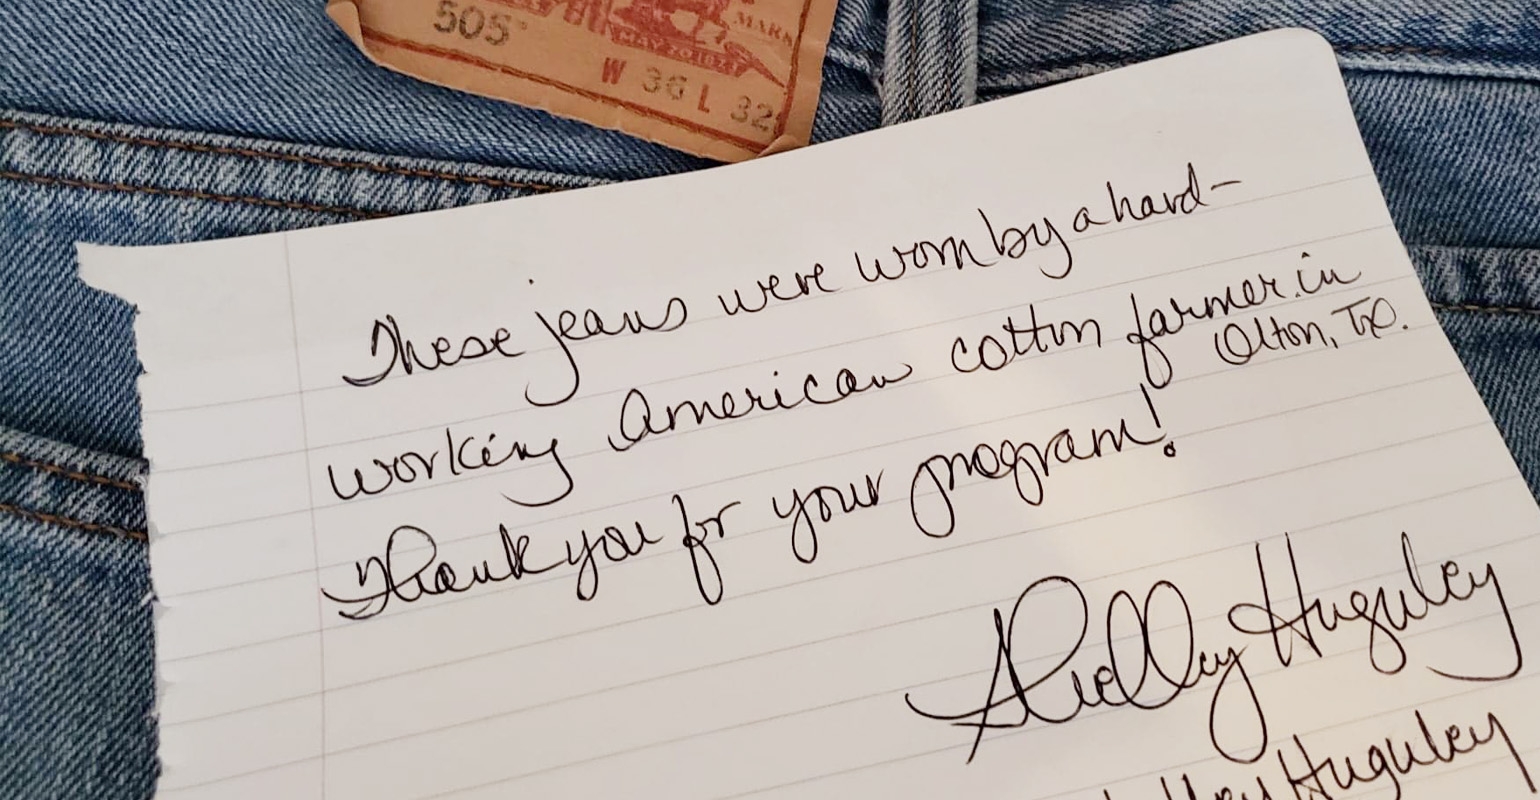 505
MARK
MAY 20 1873
W 36 L 32
These jeans were worn by a hard-
working American cotton farmer in
Olton, TX.
Thank you for your program!
Shelley Huguley
Huguley